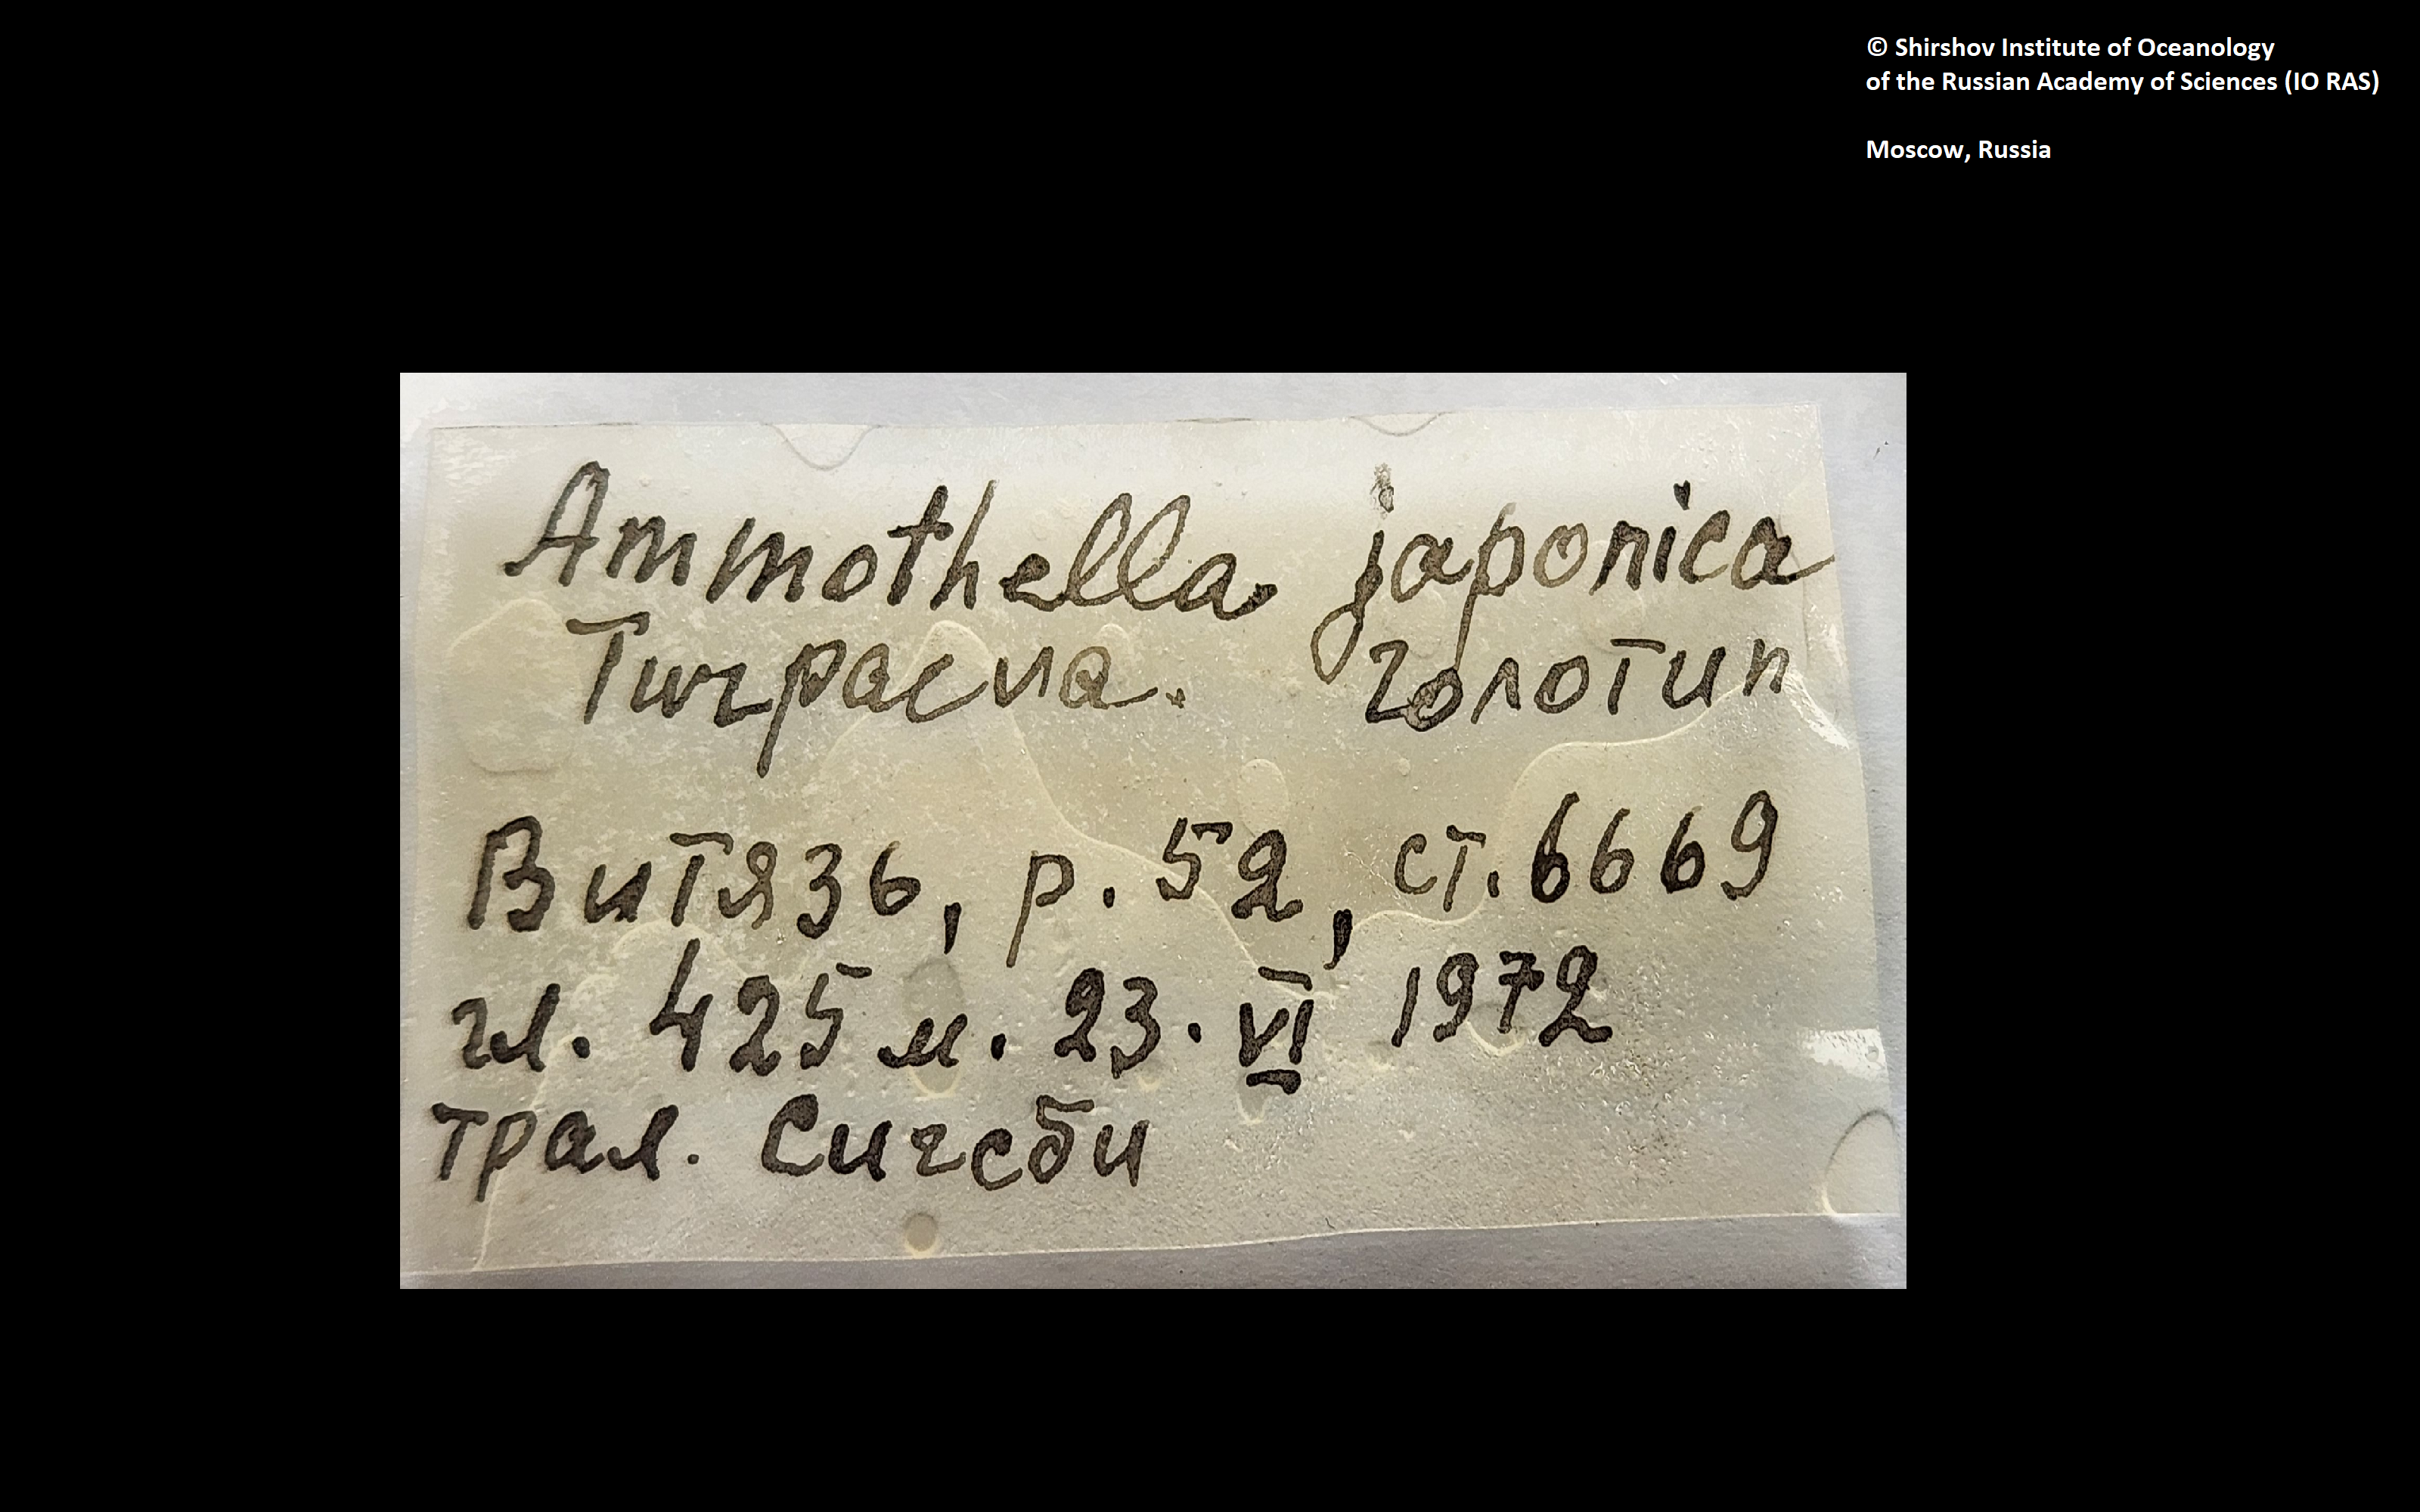 © Shirshov Institute of Oceanology
of the Russian Academy of Sciences (IO RAS)
Moscow, Russia
Ammothella japonica
голотип
Витязь, р. 52, ст. 6669
гл. 425 м. 23. VI 1972
трал. Сигсби